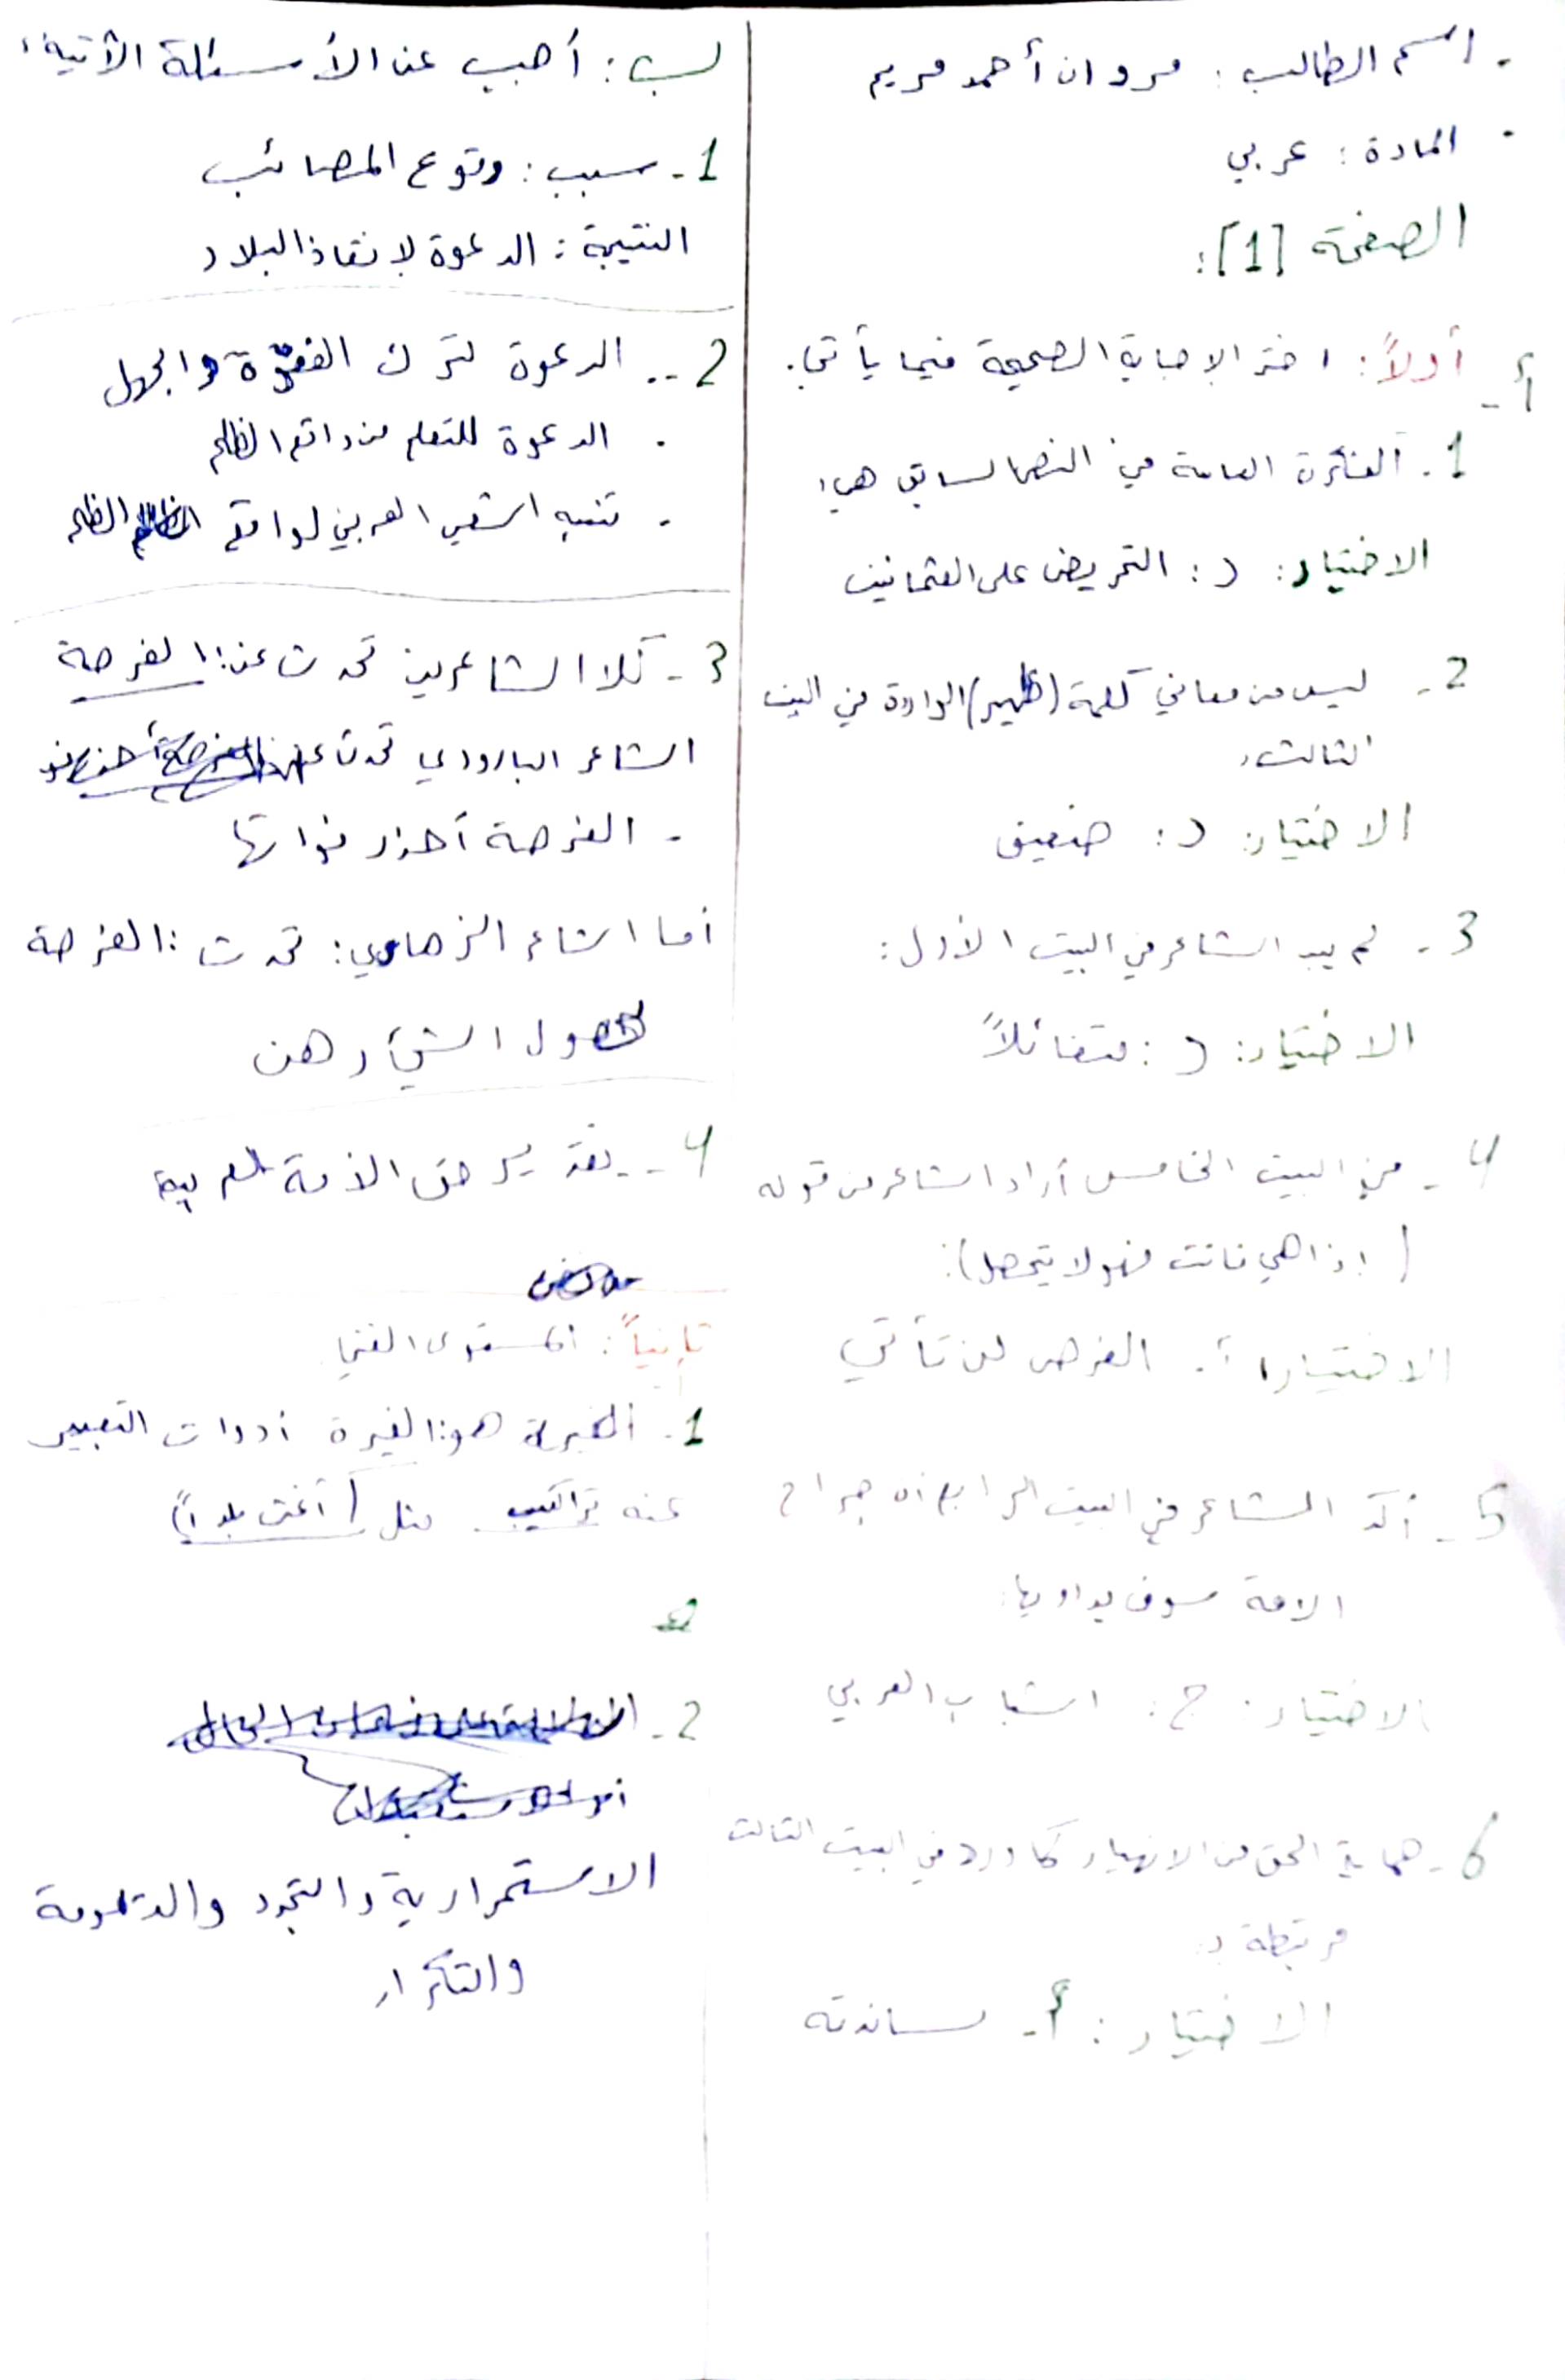 . اسم الطالب : مروان أحمد مريم
. المادة : عربي
الصفحة [1]:
أ- أولاً: اختر الإجابة الصحيحة فيما يأتي.
1. الفكرة العامة في النص السابق هي:
الاختيار: د: التحريض على العثمانيين
2- ليس من معاني كلمة (ظهير) الواردة في البيت
الثالث:
الاختيار: د: ضعيف
3- لم يبد الشاعر في البيت الأول:
الاختيار: د: متفائلاً
4- في البيت الخامس أراد الشاعر من قوله
(إذا هي فاتت فهو لا يتحصل):
الاختيار: أ. الفرص لن تأتي
5- أكد الشاعر في البيت الرابع أن جراح
الامة سوف يداويها:
الاختيار: ج: الشباب العربي
6- حماية الحق من الانهيار كما ورد في البيت الثالث
مرتبطة بـ:
الاختيار: أ- مساندته
ب: أجب عن الأسئلة الآتية:
1- سبب: وقوع المصائب
النتيجة: الدعوة لانقاذ البلاد
2-. الدعوة لترك والجهل
. الدعوة للتعلم من واقع الظلم
. تنبه الشعب العربي لواقع الظلم
3- كلا الشاعرين تحدث عن: الفرصة
الشاعر البارودي تحدث عن
- الفرصة أحذر فواتها
أما الشاعر الزهاوي: تحدث: الفرصة
لحصول الشيء رهن
4-- حق الأمة العربية
ثانياً: المستوى الفني
1. هو: الغيرة أدوات التعبير
عنه تراكيب مثل (أغث بلداً)
2-
الاستمرارية والتجدد والديمومة
والتكرار